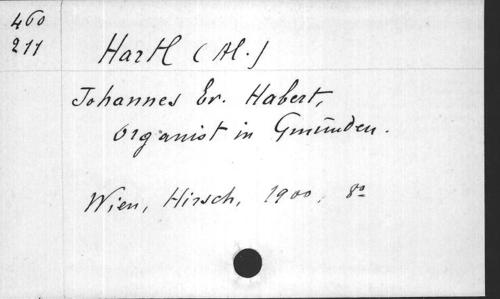 460
211
Hartl (Al.)
Johannes Ev. Habert,
Organist in Gmunden.
Wien, Hirsch, 1900, 8º